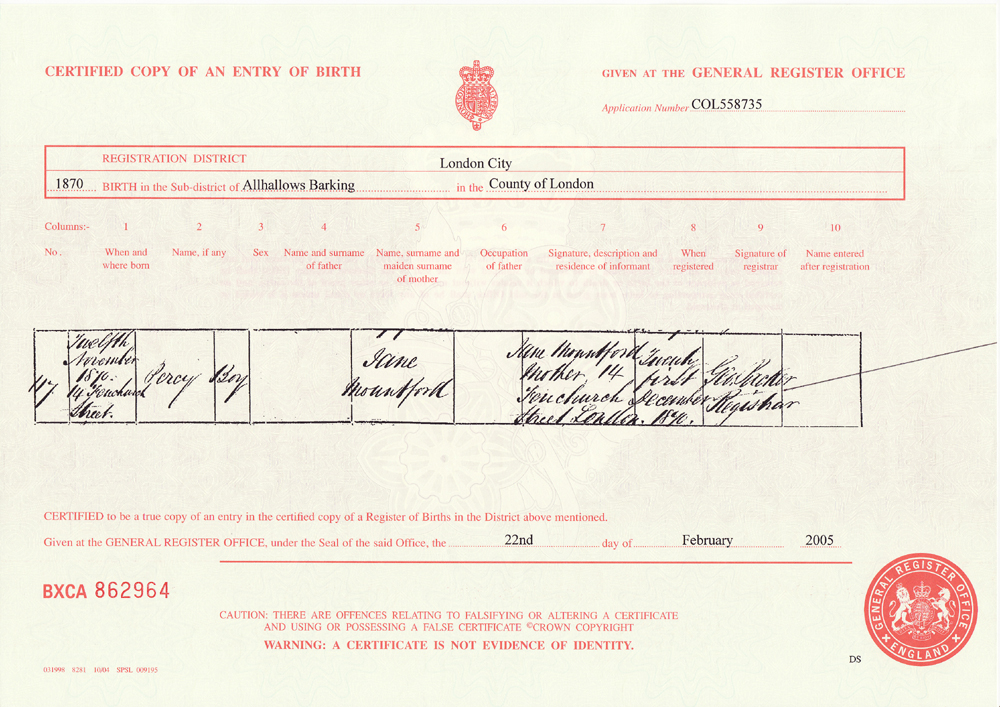 CERTIFIED COPY OF AN ENTRY OF BIRTH
GIVEN AT THE GENERAL REGISTER OFFICE
Application Number COL558735
REGISTRATION DISTRICT London City
1870 BIRTH in the Sub-district of Allhallows Barking in the County of London
Columns:- 1 2 3 4 5 6 7 8 9 10
No. When and where born Name, if any Sex Name and surname of father Name, surname and maiden surname of mother Occupation of father Signature, description and residence of informant When registered Signature of registrar Name entered after registration
47
Twelfth
November
1870.
14 Fenchurch
Street.
Percy
Boy
Jane
Mountford
Jane Mountford
Mother, 14
Fenchurch
Street, London.
Twenty
first
December
1870.
Registrar
CERTIFIED to be a true copy of an entry in the certified copy of a Register of Births in the District above mentioned.
Given at the GENERAL REGISTER OFFICE, under the Seal of the said Office, the 22nd day of February 2005
BXCA 862964
CAUTION: THERE ARE OFFENCES RELATING TO FALSIFYING OR ALTERING A CERTIFICATE
AND USING OR POSSESSING A FALSE CERTIFICATE ©CROWN COPYRIGHT
WARNING: A CERTIFICATE IS NOT EVIDENCE OF IDENTITY.
GENERAL REGISTER OFFICE
ENGLAND
DS
031998 8281 10/04 SPSL 009195